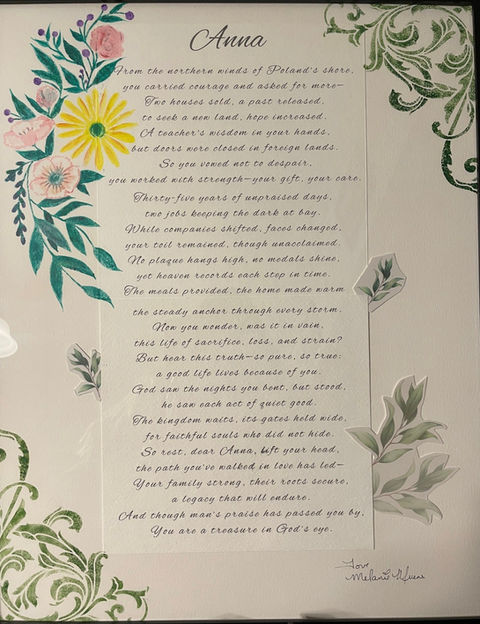 Anna
From the northern winds of Poland's shore,
you carried courage and asked for more—
Two houses sold, a past released,
to seek a new land, hope increased.
A teacher's wisdom in your hands,
but doors were closed in foreign lands.
So you vowed not to despair,
you worked with strength—your gift, your care.
Thirty-five years of unpraised days,
two jobs keeping the dark at bay.
While companies shifted, faces changed,
your toil remained, though unacclaimed.
No plaque hangs high, no medals shine,
yet heaven records each step in time.
The meals provided, the home made warm
the steady anchor through every storm.
Now you wonder, was it in vain,
this life of sacrifice, loss, and strain?
But hear this truth—so pure, so true:
a good life lives because of you.
God saw the nights you bent, but stood,
he saw each act of quiet good.
The kingdom waits, its gates held wide,
for faithful souls who did not hide.
So rest, dear Anna, lift your head,
the path you've walked in love has led—
Your family strong, their roots secure,
a legacy that will endure.
And though man's praise has passed you by,
You are a treasure in God's eye.
Love
Melanie